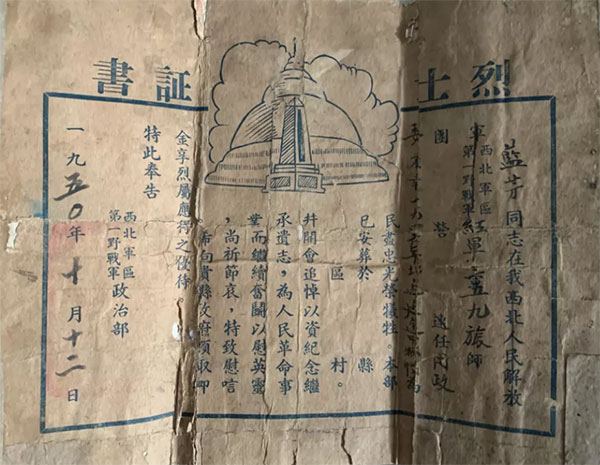 烈士証書
藍芳同志在我西北人民解放
軍西北軍區第一野戰軍紅軍三五九旅師
團 營 連任內政
民盡忠光榮犧牲。本部
已安葬於 縣
區 村。
并開會追悼以資紀念繼
承遺志，為人民革命事
業而繼續奮鬭以慰英靈
，尚祈節哀，特致慰唁
希向貴縣政府領取卹
金享烈屬應得之優待
特此奉告
西北軍區第一野戰軍政治部
一九五〇年十月十二日